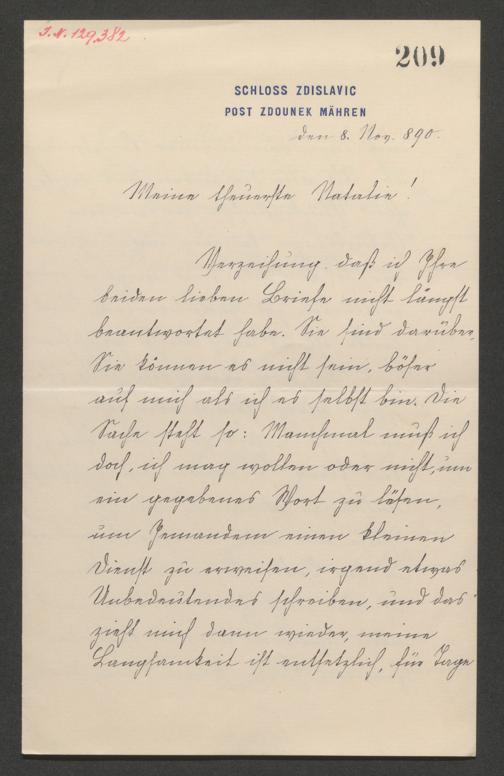 J. N. 129.382
209
SCHLOSS ZDISLAVIC
POST ZDOUNEK MÄHREN
den 8. Nov. 890.
Meine theuerste Natalie!
Verzeihung. daß ich Ihre
beiden lieben Briefe nicht längst
beantwortet habe. Sie sind darüber,
Sie können es nicht sein, böser
auf mich als ich es selbst bin. Die
Sache steht so: Manchmal muß ich
doch, ich mag wollen oder nicht, um
ein gegebenes Wort zu lösen,
um Jemandem einen kleinen
Dienst zu erweisen, irgend etwas
Unbedeutendes schreiben, und das
zieht mich dann wieder, meine
Langsamkeit ist entsetzlich, für Tage